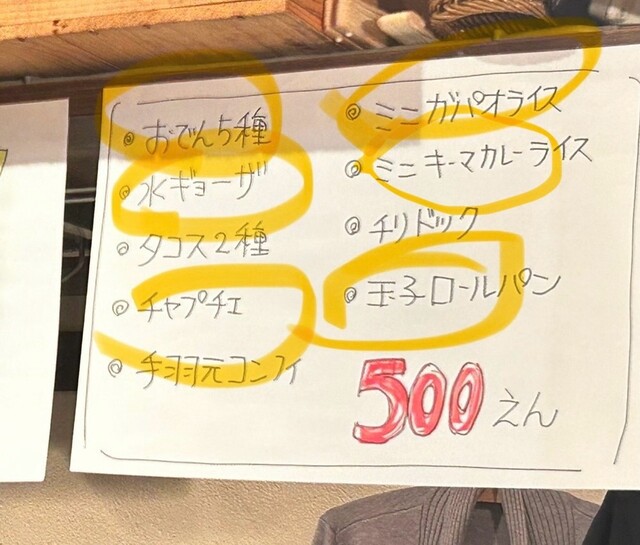 ◎おでん5種
◎水ギョーザ
◎タコス2種
◎チャプチェ
◎手羽元コンフィ
◎ミニガパオライス
◎ミニキーマカレーライス
◎チリドック
◎玉子ロールパン
500えん